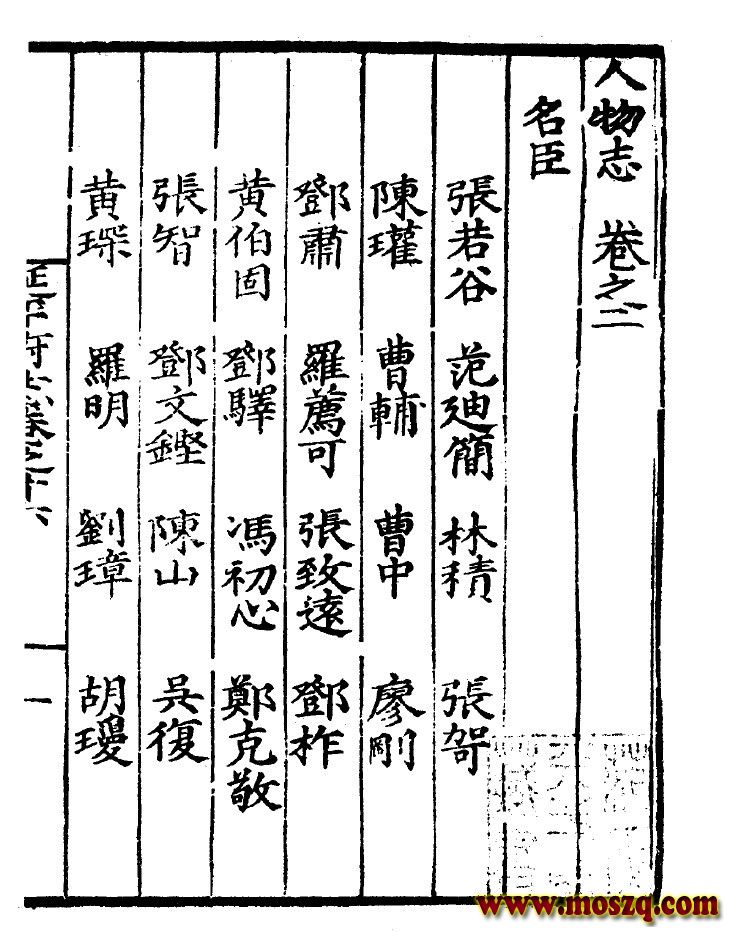 人物志 卷之二
名臣
張若谷 范迪簡 林積 張哿
陳瓘 曹輔 曹中 廖剛
鄧肅 羅薦可 張致遠 鄧柞
黄伯固 鄧驛 馮初心 鄭克敬
張智 鄧文鏗 陳山 吳復
黄琛 羅明 劉璋 胡瓊
一
www.moszq.com